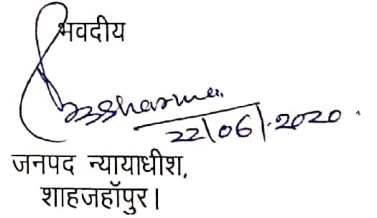 भवदीय
Sharma
22/06/2020.
जनपद न्यायाधीश,
शाहजहॉपुर।